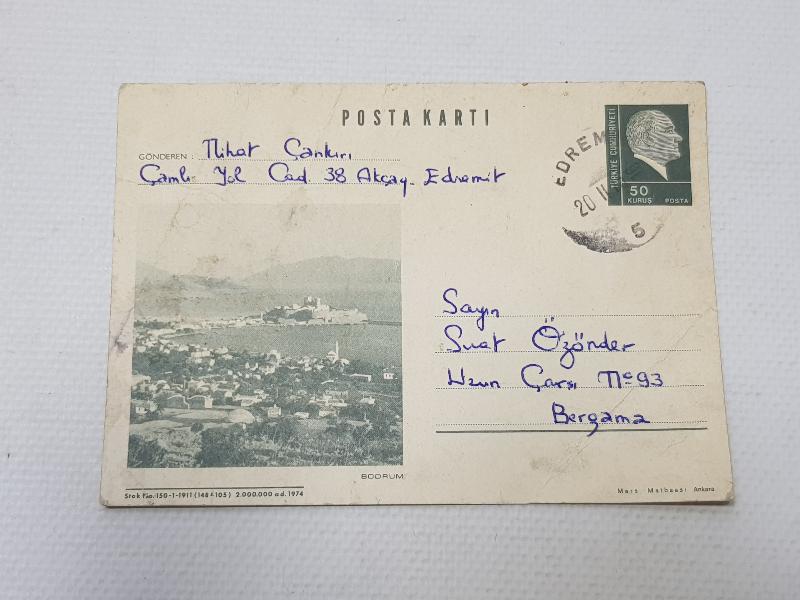 POSTA KARTI
GÖNDEREN : Nihat Çankırı
Çamlı Yol Cad. 38 Akçay - Edremit
TÜRKİYE CUMHURİYETİ
50
KURUŞ POSTA
EDREM
20 II
5
Sayın
Suat Özönder
Uzun Çarşı No 93
Bergama
BODRUM
Stok No. 150-1-1911 (148x105) 2.000.000 ad. 1974
Mars Matbaası Ankara